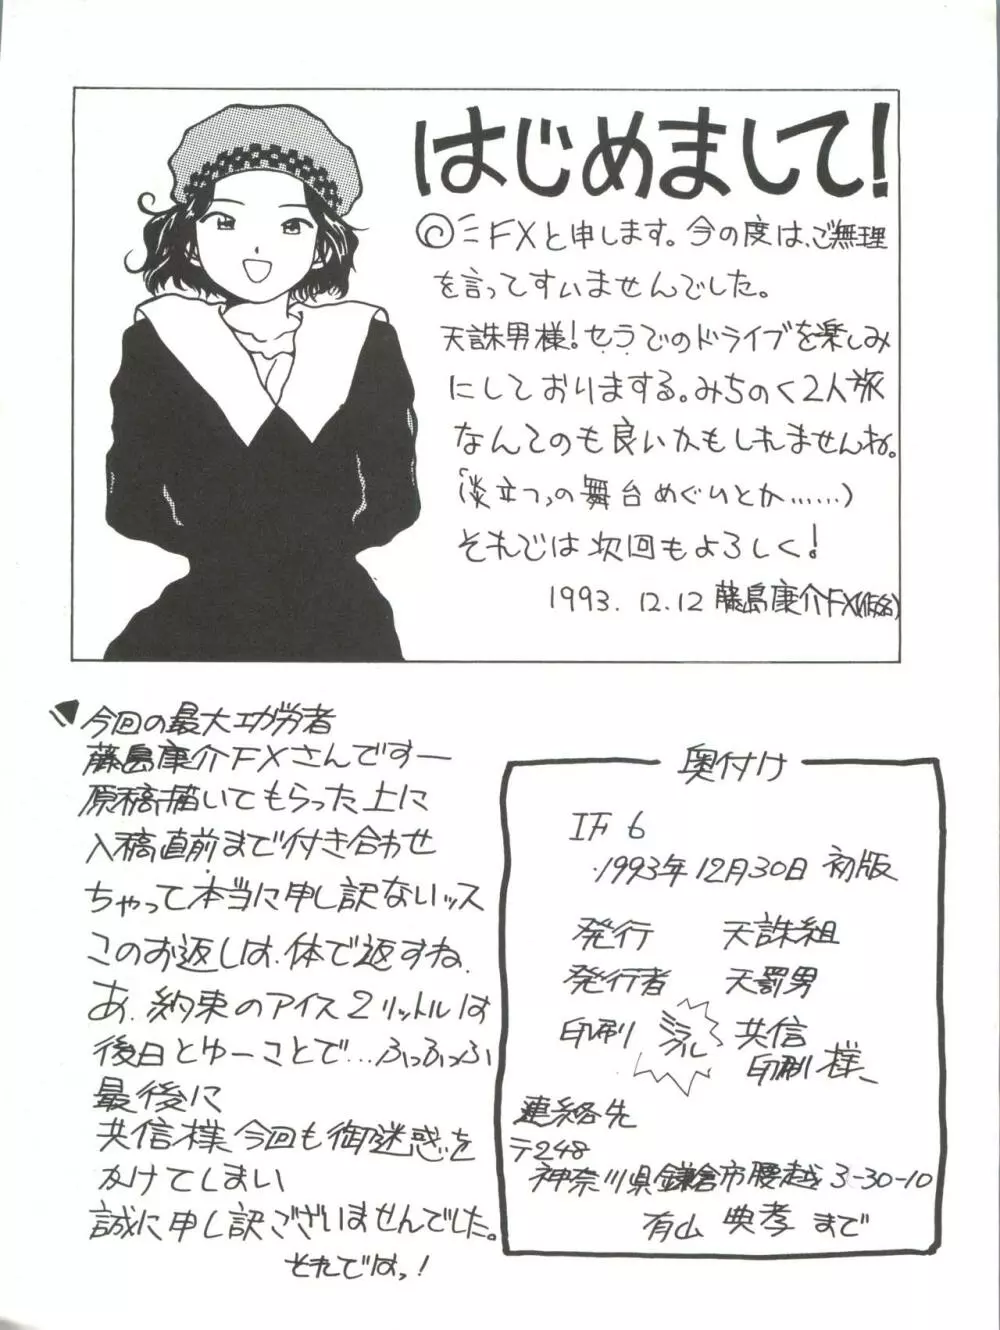 はじめまして!
FXと申します。今の度は、ご無理
を言ってすいませんでした。
天誅男様!セラでのドライブを楽しみ
にしておりまする。みちのく2人旅
なんてのも良いかもしれませんね。
の舞台めぐりとか……)
それでは次回もよろしく!
1993.12.12 藤島康介FX(仮名)
今回の最大功労者
藤島康介FXさんですー
原稿描いてもらった上に
入稿直前まで付き合わせ
ちゃって本当に申し訳ないッス
このお返しは、体で返すね。
あ、約束のアイス2リットルは
後日とゆーことで…ふっふっふ
最後に
共信様、今回も御迷惑を
かけてしまい
誠に申し訳ございませんでした。
それではっ!
奥付け
IF 6
1993年12月30日 初版
発行 天誅組
発行者 天罰男
印刷 ミラクル 共信
印刷 様、
連絡先
〒248
神奈川県鎌倉市腰越3-30-10
有山 典孝 まで